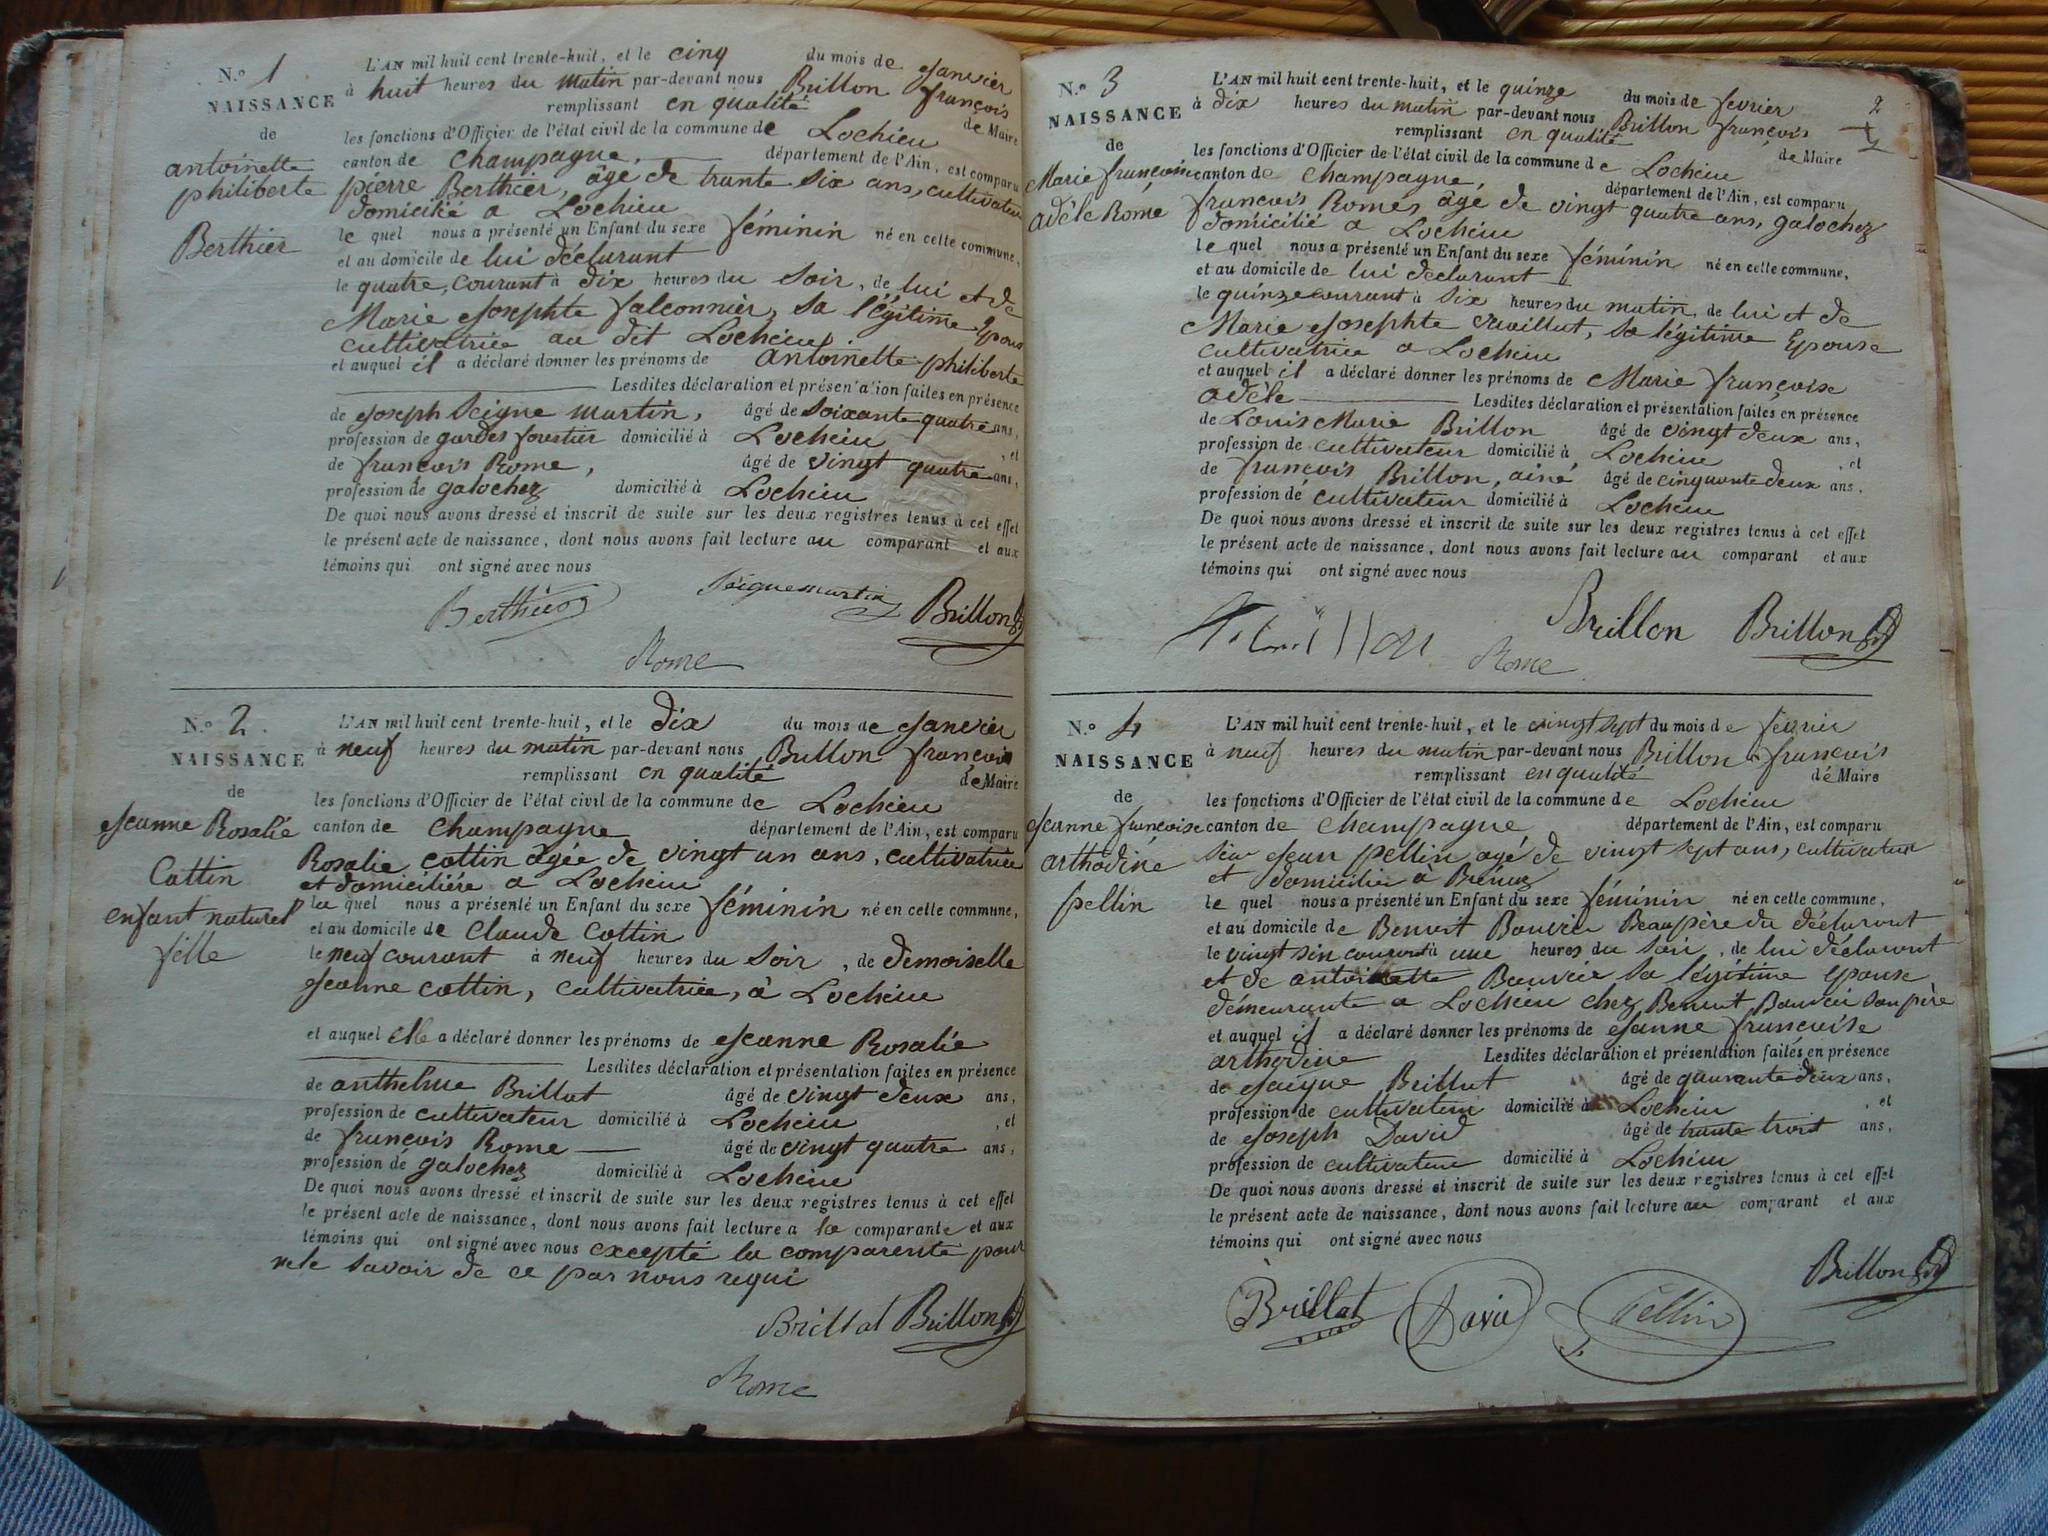 N.° 1
NAISSANCE
de
antoinette
philiberte
Berthier
L'AN mil huit cent trente-huit, et le cinq du mois de Janvier
à huit heures du matin par-devant nous Brillon françois
remplissant en qualité de Maire
les fonctions d'Officier de l'état civil de la commune de Lochieu
canton de Champagne, département de l'Ain, est comparu
pierre Berthier, âgé de trante six ans, cultivateur
domicilié a Lochieu
le quel nous a présenté un Enfant du sexe féminin né en cette commune,
et au domicile de lui déclarant
le quatre, courant à dix heures du soir, de lui et de
Marie Josephte falconnier, sa légitime Epouse
cultivatrice au dit Lochieu
et auquel il a déclaré donner les prénoms de antoinette philiberte
Lesdites déclaration et présentation faites en présence
de Joseph Seigne martin, âgé de soixante quatre ans,
profession de gardes forestier domicilié à Lochieu, et
de françois Rome, âgé de vingt quatre ans,
profession de galochez domicilié à Lochieu
De quoi nous avons dressé et inscrit de suite sur les deux registres tenus à cet effet
le présent acte de naissance, dont nous avons fait lecture au comparant et aux
témoins qui ont signé avec nous
Berthier Seignemartin Brillon
Rome
N.° 2
NAISSANCE
de
Jeanne Rosalie
Cottin
enfant naturel
fille
L'AN mil huit cent trente-huit, et le dix du mois de Janvier
à neuf heures du matin par-devant nous Brillon françois
remplissant en qualité de Maire
les fonctions d'Officier de l'état civil de la commune de Lochieu
canton de Champagne département de l'Ain, est comparu
Rosalie cottin âgée de vingt un ans, cultivatrice
et domiciliére a Lochieu
la quel nous a présenté un Enfant du sexe féminin né en cette commune,
et au domicile de Claude Cottin
le neuf courant à neuf heures du soir, de demoiselle
Jeanne cottin, cultivatrice, à Lochieu
et auquel elle a déclaré donner les prénoms de Jeanne Rosalie
Lesdites déclaration et présentation faites en présence
de anthelme Brillat âgé de vingt deux ans,
profession de cultivateur domicilié à Lochieu, et
de françois Rome âgé de vingt quatre ans,
profession de galochez domicilié à Lochieu
De quoi nous avons dressé et inscrit de suite sur les deux registres tenus à cet effet
le présent acte de naissance, dont nous avons fait lecture a la comparante et aux
témoins qui ont signé avec nous excepté la comparente pour
ne le savoir de ce par nous requi
Brillat Brillon
Rome
2
N.° 3
NAISSANCE
de
Marie françoise
adèle Rome
L'AN mil huit cent trente-huit, et le quinze du mois de fevrier
à dix heures du matin par-devant nous Brillon françois
remplissant en qualité de Maire
les fonctions d'Officier de l'état civil de la commune de Lochieu
canton de Champagne, département de l'Ain, est comparu
françois Rome, âgé de vingt quatre ans, galochez
domicilié a Lochieu
le quel nous a présenté un Enfant du sexe féminin né en cette commune,
et au domicile de lui déclarant
le quinze courant à six heures du matin, de lui et de
Marie Josephte Savillat, sa légitime Epouse
cultivatrice a Lochieu
et auquel il a déclaré donner les prénoms de Marie françoise
adèle Lesdites déclaration et présentation faites en présence
de Louis Marie Brillon âgé de vingt deux ans,
profession de cultivateur domicilié à Lochieu, et
de françois Brillon, ainé âgé de cinquante deux ans,
profession de cultivateur domicilié à Lochieu
De quoi nous avons dressé et inscrit de suite sur les deux registres tenus à cet effet
le présent acte de naissance, dont nous avons fait lecture au comparant et aux
témoins qui ont signé avec nous
Brillon Brillon
Rome
N.° 4
NAISSANCE
de
Jeanne françoise
arthodine
pellin
L'AN mil huit cent trente-huit, et le vingt sept du mois de février
à neuf heures du matin par-devant nous Brillon françois
remplissant en qualité de Maire
les fonctions d'Officier de l'état civil de la commune de Lochieu
canton de Champagne département de l'Ain, est comparu
Jean pellin agé de vingt sept ans, cultivateur
et domicilié à Brénaz
le quel nous a présenté un Enfant du sexe féminin né en cette commune,
et au domicile de Benoit Bouvier Beaupère du déclarant
le vingt six courant à une heures du soir, de lui déclarant
et de antoinette Bouvier sa légitime epouse
demeurante a Lochieu chez Benoit Bouvier son père
et auquel il a déclaré donner les prénoms de Jeanne françoise
arthodine Lesdites déclaration et présentation faites en présence
de Jacque Brillat âgé de quarante deux ans,
profession de cultivateur domicilié à Lochieu, et
de Joseph David âgé de trante trois ans,
profession de cultivateur domicilié à Lochieu
De quoi nous avons dressé et inscrit de suite sur les deux registres tenus à cet effet
le présent acte de naissance, dont nous avons fait lecture au comparant et aux
témoins qui ont signé avec nous
Brillon
Brillat David Pellin